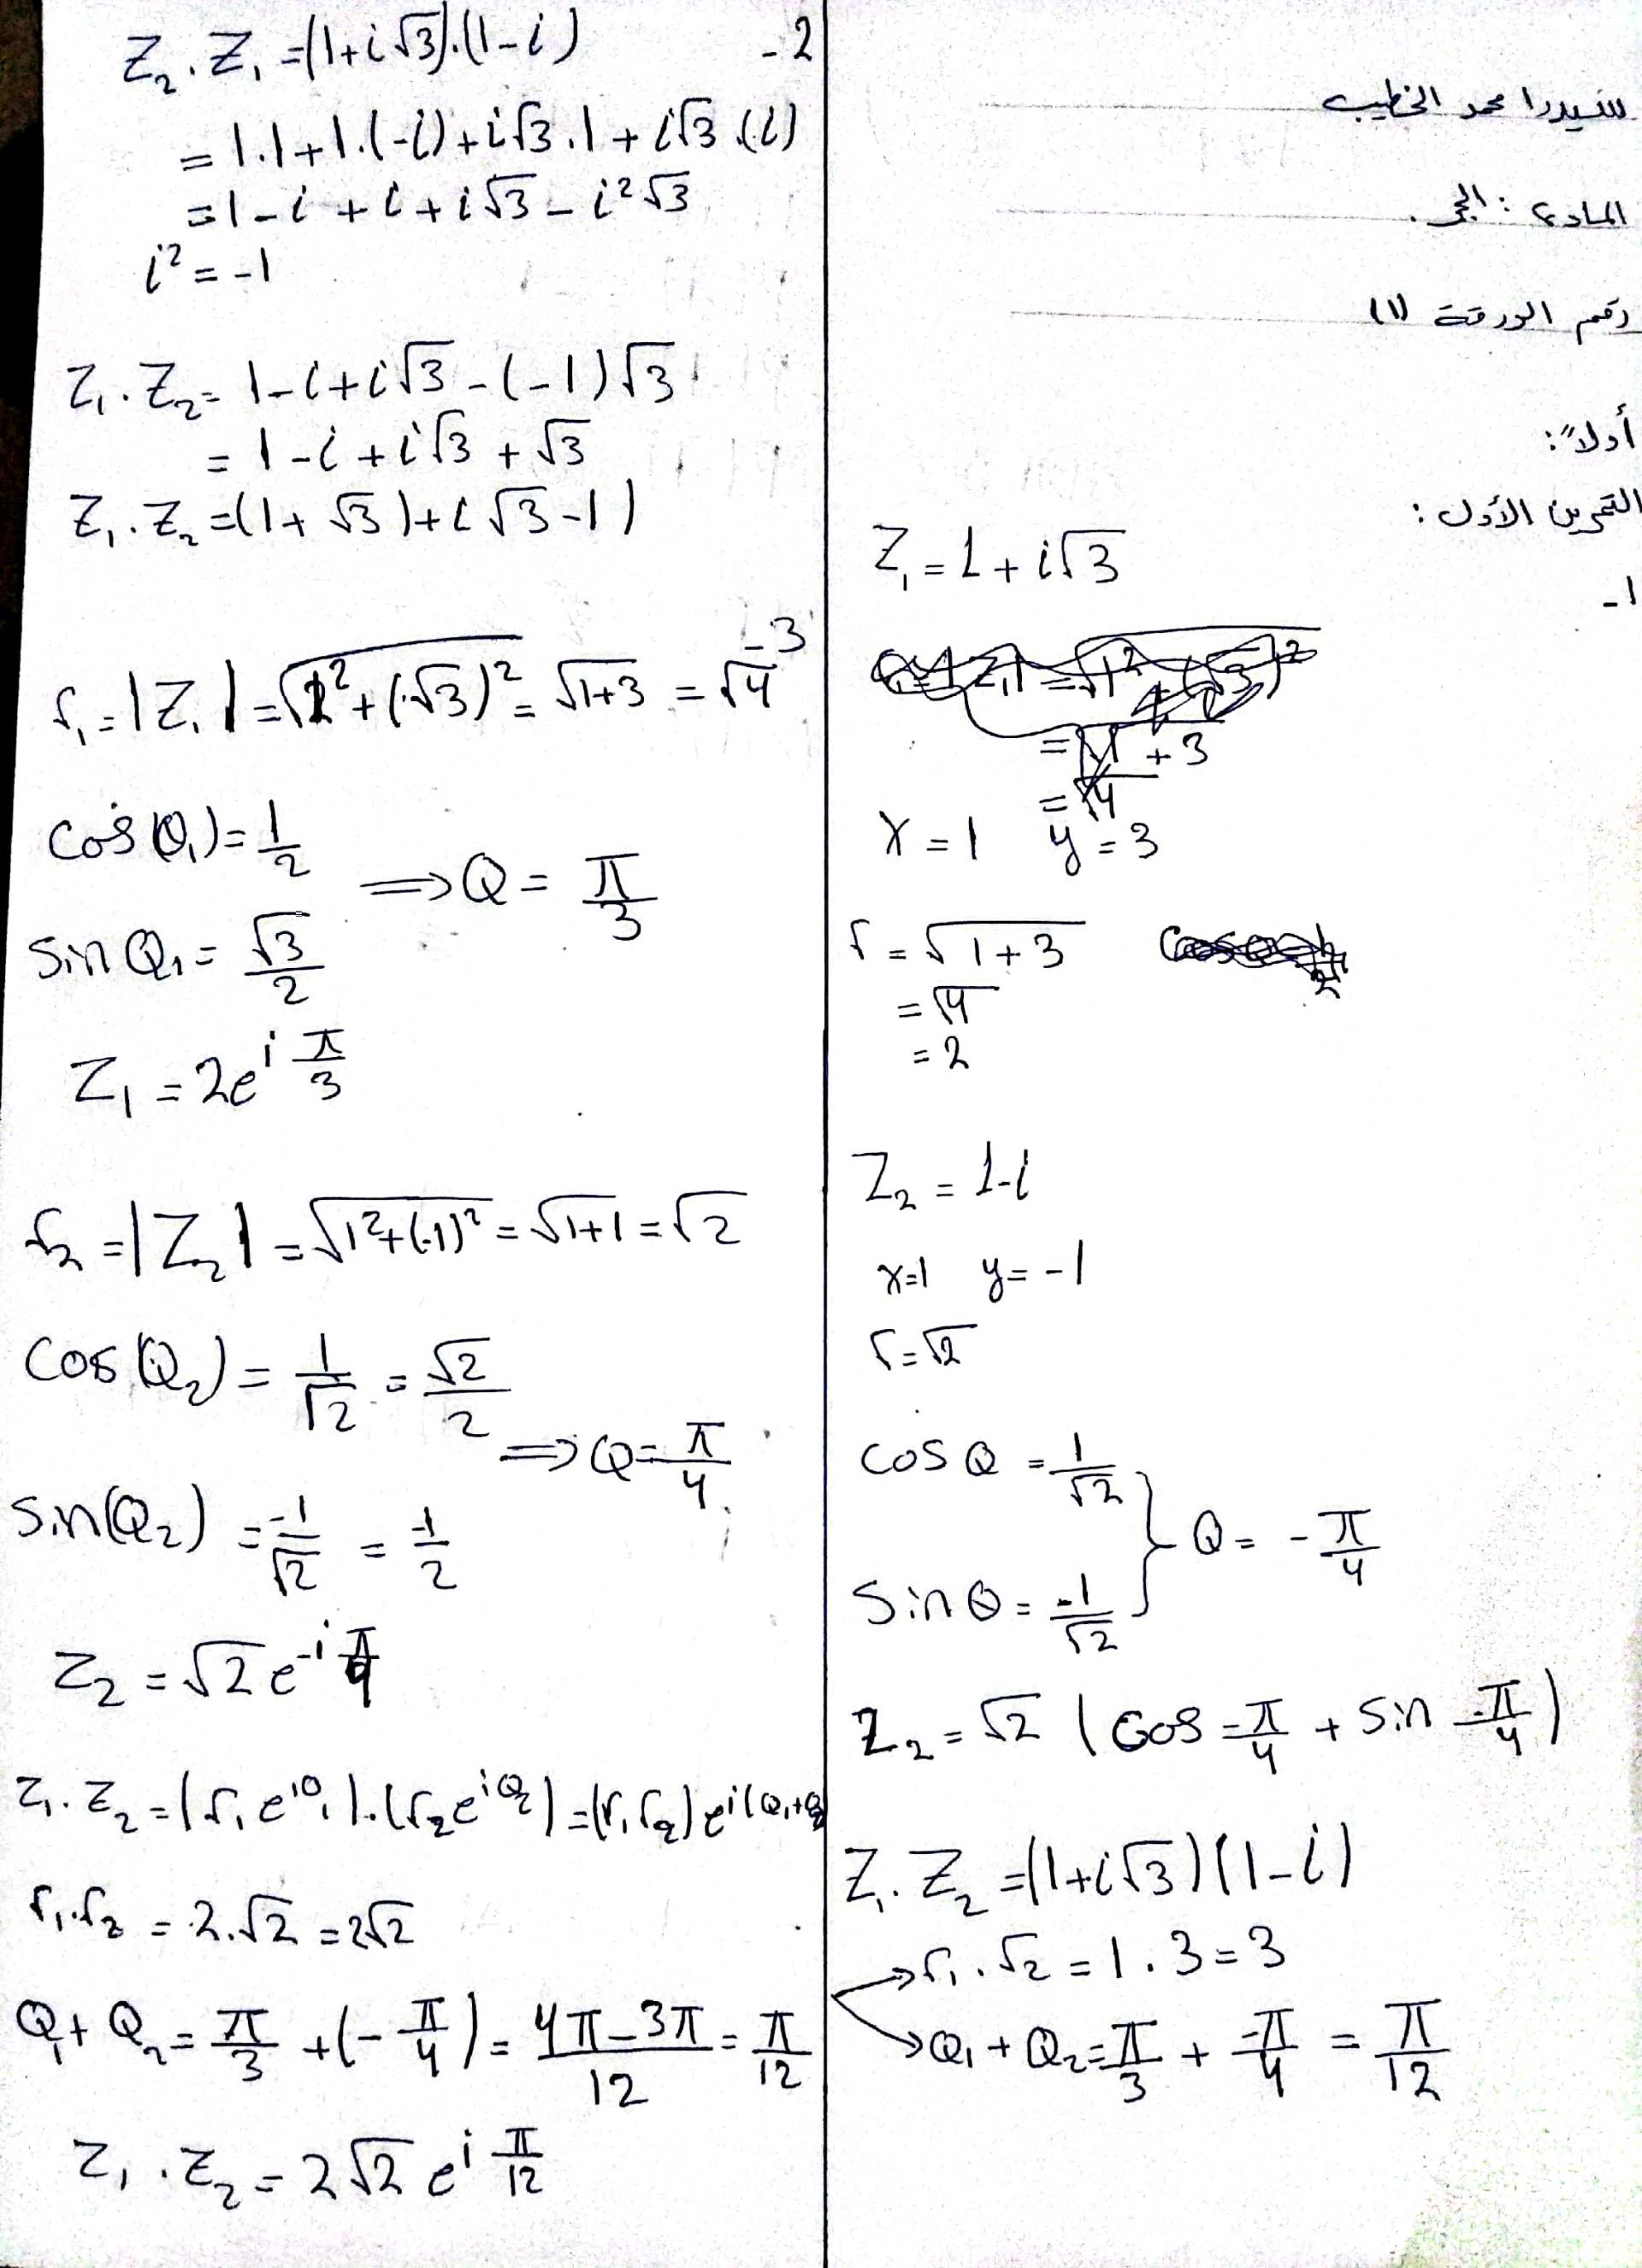 سيدرا محمد الخطيب
المادة : الجبر .
رقم الورقة (١)
أولاً :
التمرين الأول :
١-
Z₁ = 1 + i√3
= √4
x = 1 y = 3
r = √1+3
= √4
= 2
Z₂ = 1-i
x=1 y= -1
r=√2
cos Q = 1/√2
sin θ = -1/√2 } Q = -π/4
Z₂ = √2 (cos -π/4 + sin -π/4)
Z₁. Z₂ =(1+i√3)(1-i)
r₁.√2 = 1 . 3 = 3
Q₁ + Q₂ = π/3 + -π/4 = π/12
-2
Z₂ . Z₁ =(1+i√3).(1-i)
= 1.1+1.(-i)+i√3.1+i√3.(i)
=1-i+i+i√3-i²√3
i² = -1
Z₁. Z₂ = 1-i+i√3-(-1)√3
= 1-i+i√3+√3
Z₁. Z₂ =(1+√3)+i√3-1)
-3
r₁ = |Z₁| = √1²+(√3)² = √1+3 = √4
cos(θ₁) = 1/2
sin Q₁ = √3/2 ⟹ Q = π/3
Z₁ = 2e^i π/3
r₂ = |Z₂| = √1²+(-1)² = √1+1 = √2
cos(Q₂) = 1/√2 = √2/2
sin(Q₂) = -1/√2 = -1/2 ⟹ Q = π/4
Z₂ = √2 e^-i π/4
Z₁. Z₂ = (r₁ e^iθ₁).(r₂ e^iQ₂) = (r₁ r₂) e^i(Q₁+Q₂
r₁.r₂ = 2.√2 = 2√2
Q₁ + Q₂ = π/3 + (- π/4) = 4π-3π/12 = π/12
Z₁ . Z₂ = 2√2 e^i π/12